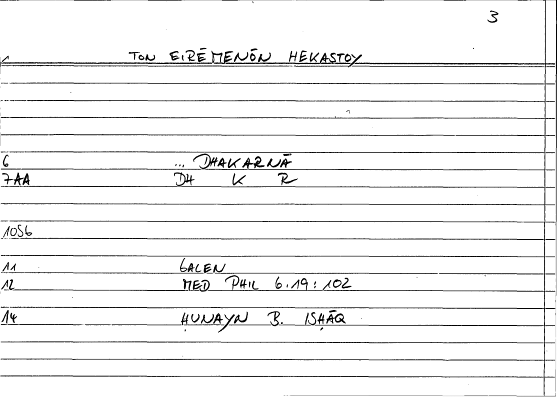 3
1 TON EIRĒMENŌN HEKASTOY
6 ... DHAKARNĀ
7AA DH K R
1056
11 GALEN
12 MED PHIL 6.19:102
14 ḤUNAYN B. ISḤĀQ